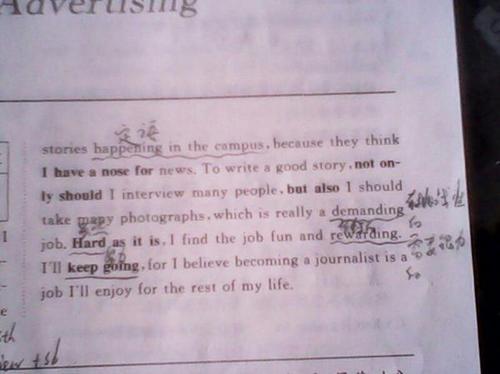 Advertising
定语
stories happening in the campus, because they think
I have a nose for news. To write a good story, not on-
ly should I interview many people, but also I should
take many photographs, which is really a demanding
job. Hard as it is, I find the job fun and rewarding.
I'll keep going, for I believe becoming a journalist is a
job I'll enjoy for the rest of my life.